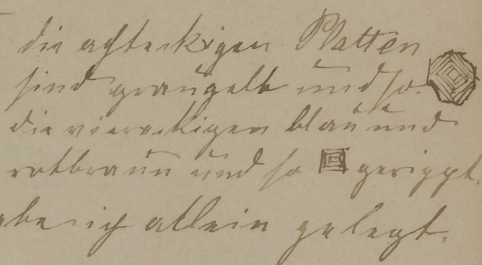 die achteckigen Platten
sind graugelb und so
die viereckigen blau und
rotbraun und so gerippt.
habe ich allein gelegt.